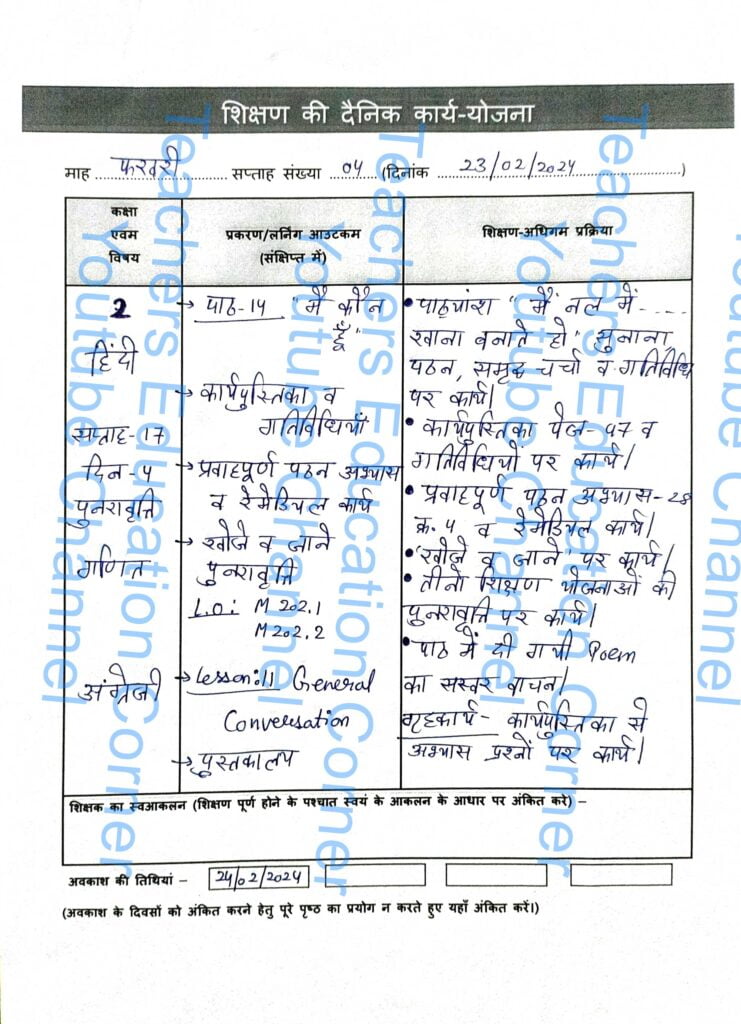 शिक्षण की दैनिक कार्य-योजना
माह फरवरी सप्ताह संख्या 04 (दिनांक 23/02/2024)
कक्षा
एवम
विषय
प्रकरण/लर्निंग आउटकम
(संक्षिप्त में)
शिक्षण-अधिगम प्रक्रिया
2
हिंदी
सप्ताह-17
दिन-4
पुनरावृत्ति
गणित
अंग्रेजी
→ पाठ-14 "मैं कौन
हूँ"
→ कार्यपुस्तिका व
गतिविधियाँ
→ प्रवाहपूर्ण पठन अभ्यास
व रेमेडियल कार्य
→ खोजे व जाने
पुनरावृत्ति
L.O: M 202.1
M 202.2
→ Lesson:11 General
Conversation
→ पुस्तकालय
• पाठ्यांश "मैं नल में ....
खाना बनाते हो" सुनाना
पठन, समूह चर्चा व गतिविधि
पर कार्य।
• कार्यपुस्तिका पेज-47 व
गतिविधियों पर कार्य।
• प्रवाहपूर्ण पठन अभ्यास-28
क्र. 4 व रेमेडियल कार्य।
• 'खोजे व जाने' पर कार्य।
• तीनो शिक्षण योजनाओं की
पुनरावृत्ति पर कार्य।
• पाठ में दी गयी Poem
का सस्वर वाचन।
गृहकार्य- कार्यपुस्तिका से
अभ्यास प्रश्नों पर कार्य।
शिक्षक का स्वआकलन (शिक्षण पूर्ण होने के पश्चात स्वयं के आकलन के आधार पर अंकित करे) –
अवकाश की तिथियां – 24/02/2024
(अवकाश के दिवसों को अंकित करने हेतु पूरे पृष्ठ का प्रयोग न करते हुए यहाँ अंकित करें।)
Teachers Education Corner
Youtube Channel
Teachers Education Corner
Youtube Channel
Teachers Education Corner
Youtube Channel